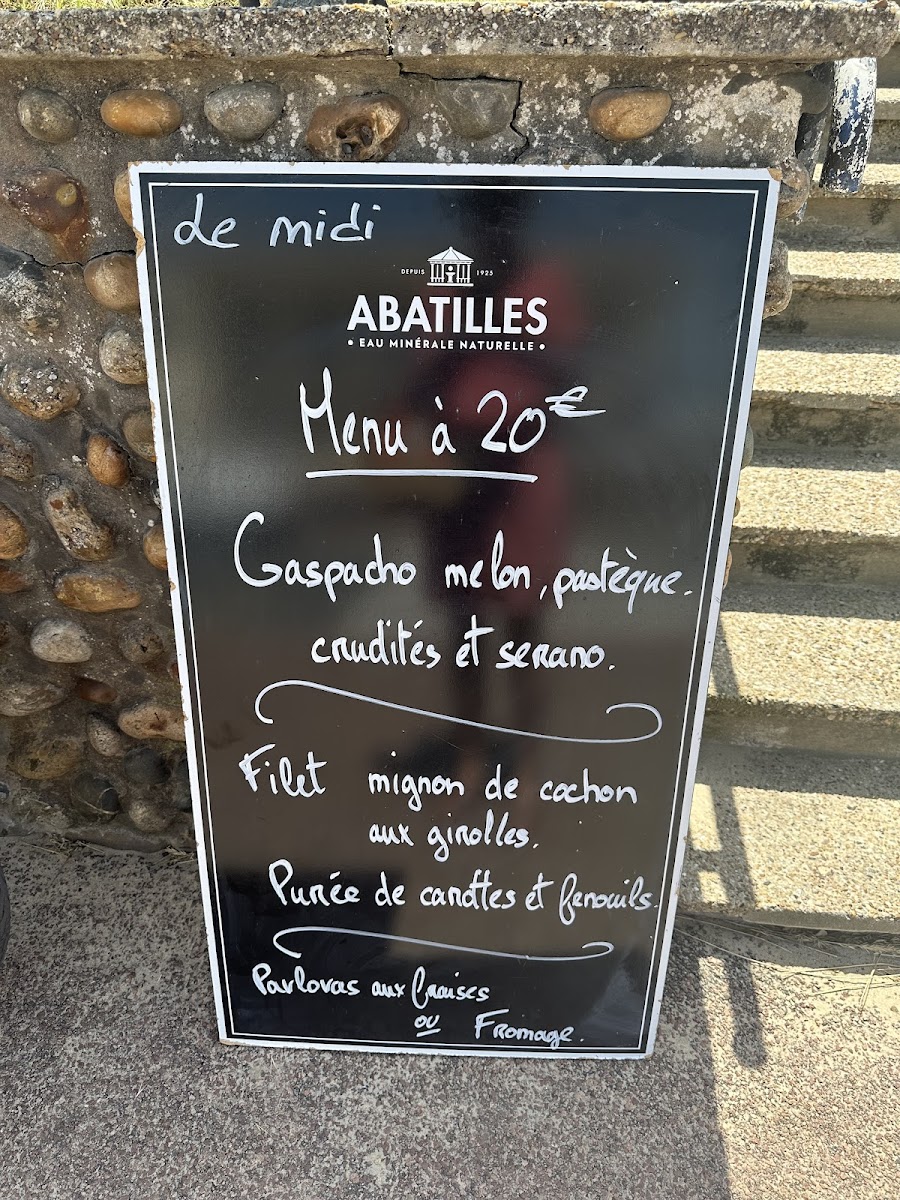 de midi
DEPUIS 1925
ABATILLES
• EAU MINÉRALE NATURELLE •
Menu à 20€
Gaspacho melon, pastèque.
crudités et serano.
Filet mignon de cochon
aux girolles.
Purée de carottes et fenouils.
Pavlovas aux fraises
ou Fromage.